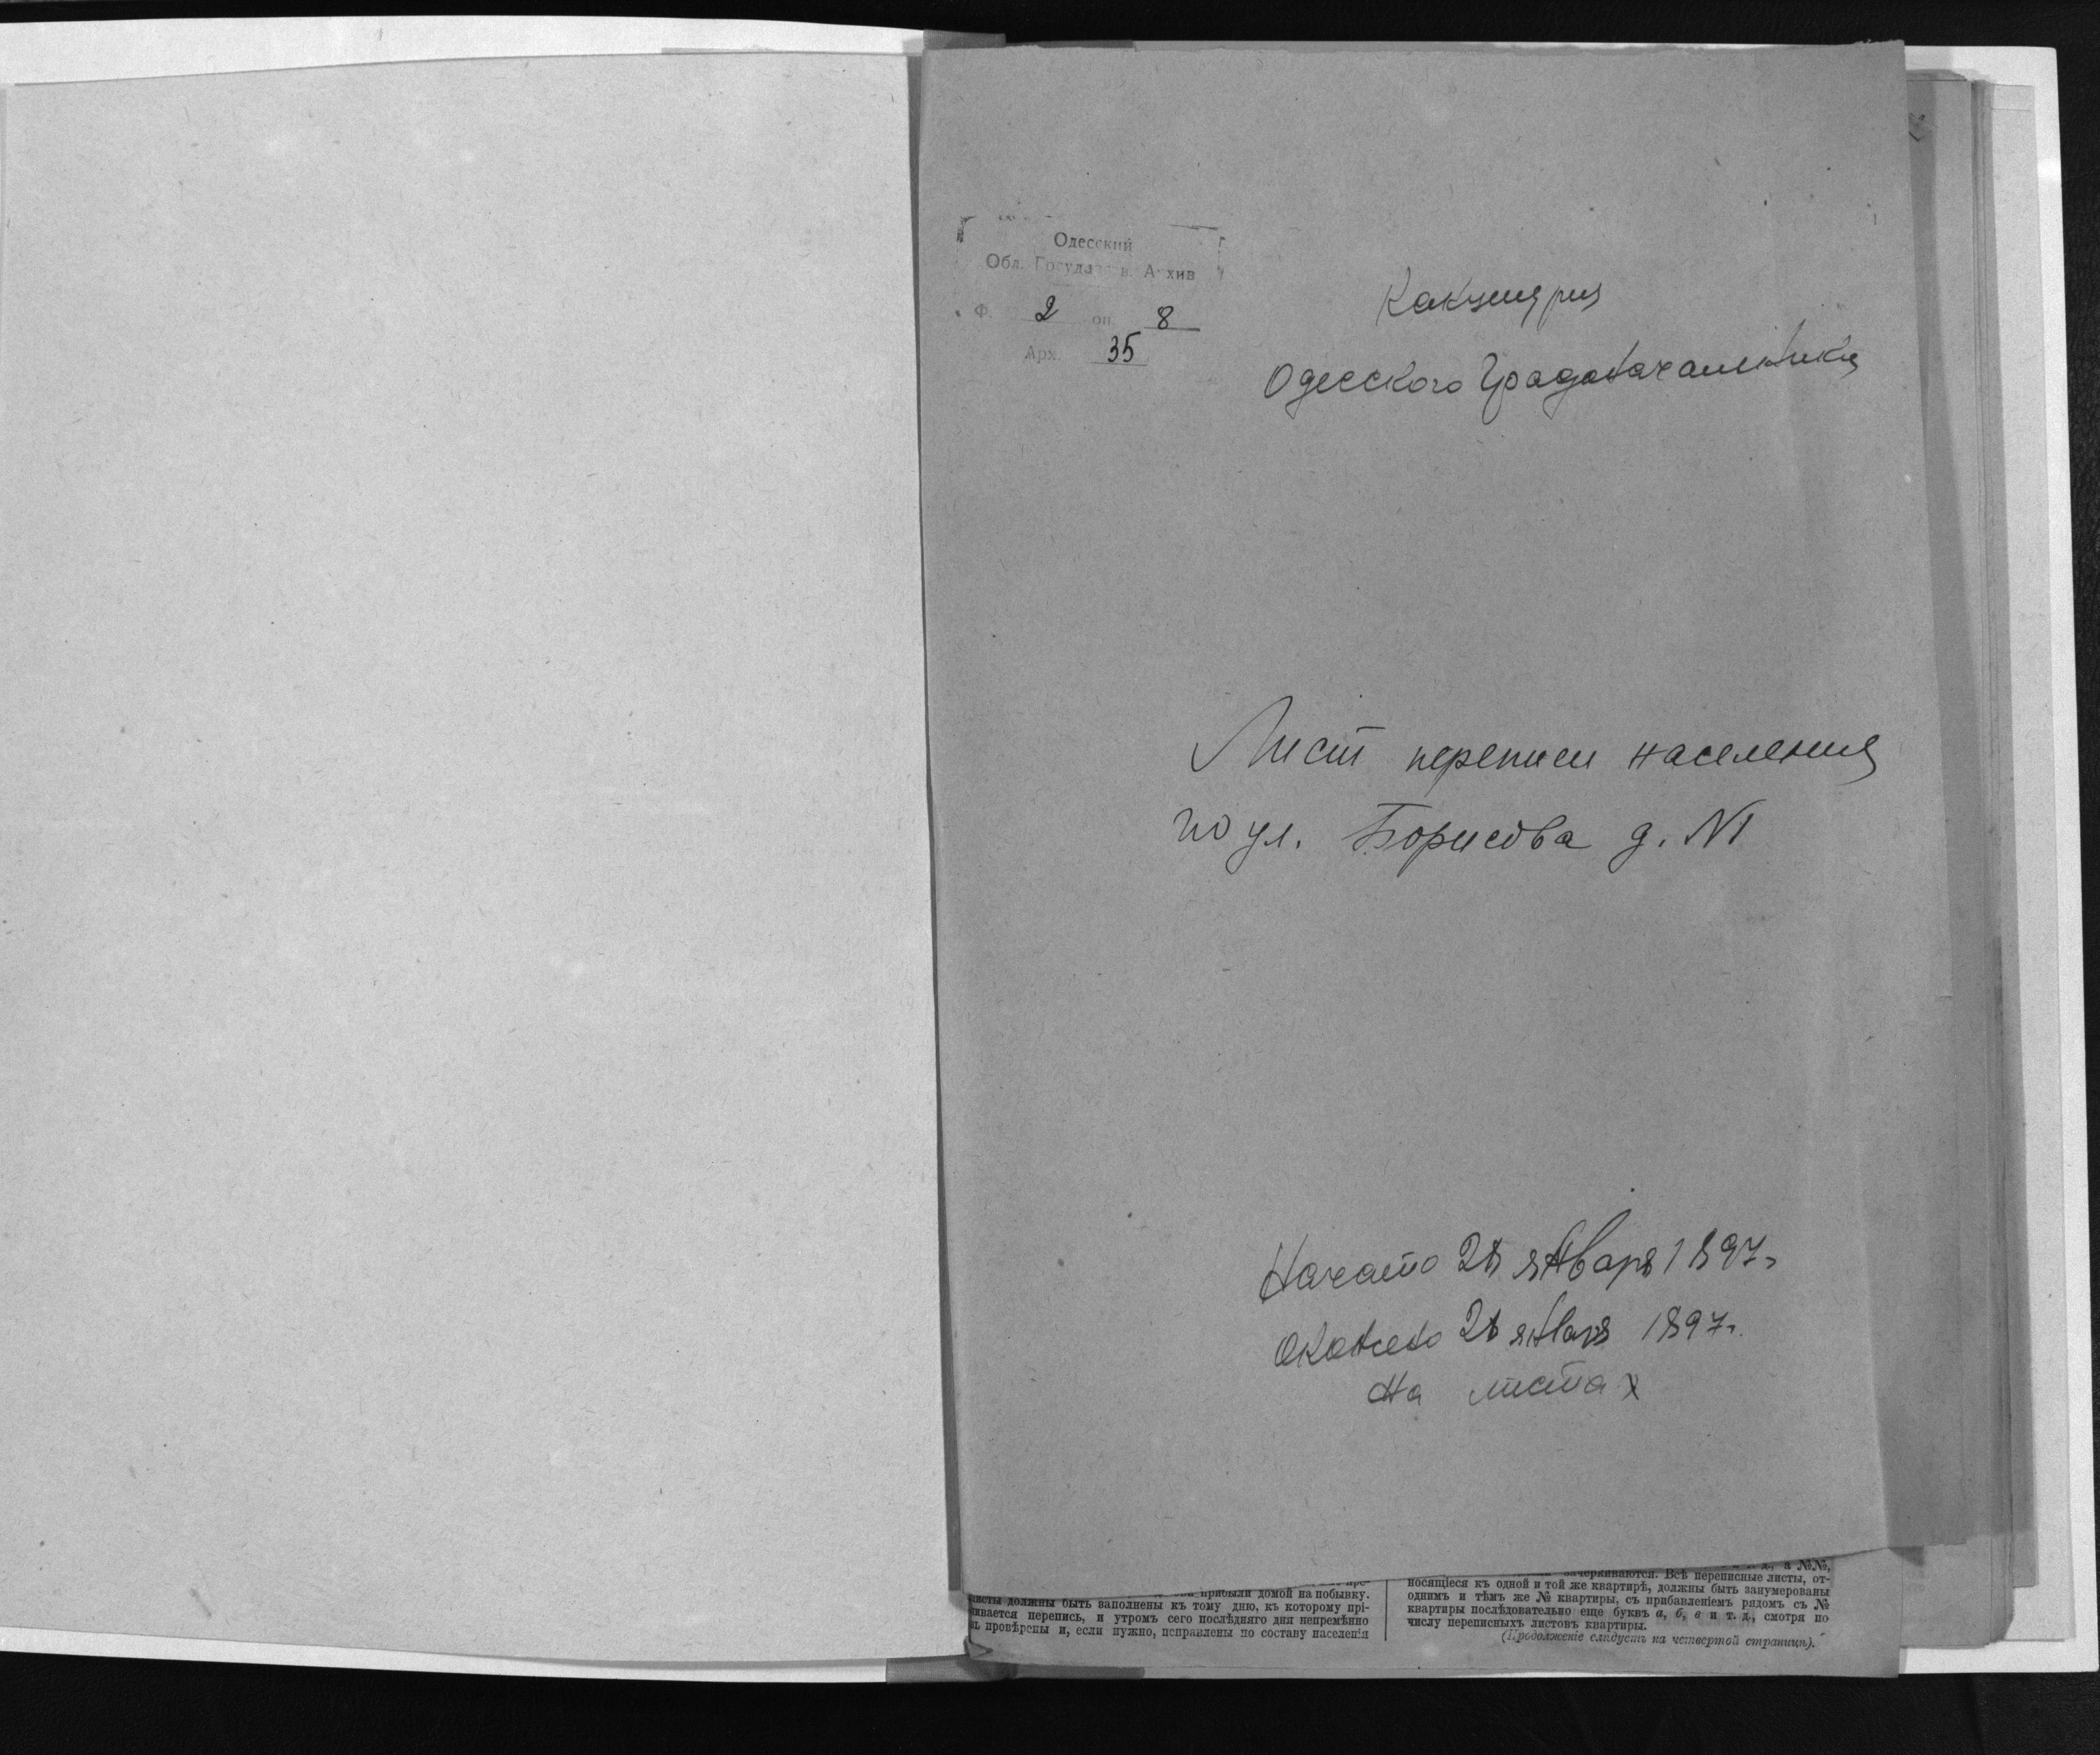 Одесский
Обл. Государств. Архив
Ф. 2 оп. 8
Арх. 35
Канцелярия
Одесского Градоначальника
Лист переписи населения
по ул. Борисова д. N1
Начато 28 января 1897г.
Окончено 28 января 1897г.
На листах
прибыли домой на побывку.
листы должны быть заполнены къ тому дню, къ которому прі-
перепись, и утромъ сего послѣдняго дня непремѣнно
провѣрены и, если нужно, исправлены по составу населенія
д., а №№,
зачеркиваются. Всѣ переписные листы, от-
носящіеся къ одной и той же квартирѣ, должны быть занумерованы
однимъ и тѣмъ же № квартиры, съ прибавленіемъ рядомъ съ №
квартиры послѣдовательно еще буквъ а, б, в и т. д., смотря по
числу переписныхъ листовъ квартиры.
(Продолженіе слѣдуетъ на четвертой страницѣ).